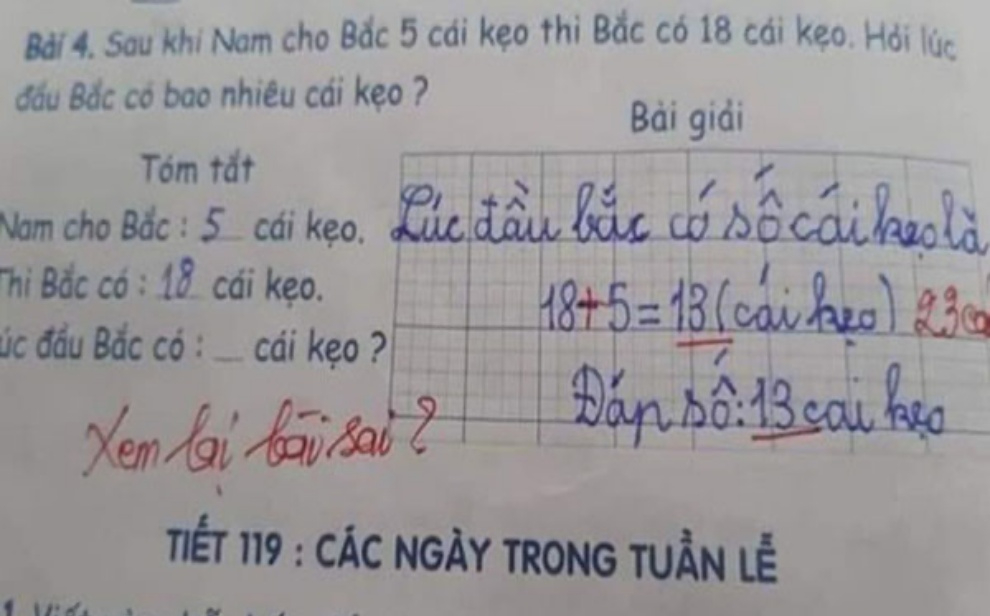 Bài 4. Sau khi Nam cho Bắc 5 cái kẹo thì Bắc có 18 cái kẹo. Hỏi lúc
đầu Bắc có bao nhiêu cái kẹo ?
Bài giải
Tóm tắt
Nam cho Bắc : 5 cái kẹo.
Thì Bắc có : 18 cái kẹo.
úc đầu Bắc có : __ cái kẹo ?
Lúc đầu bắc có số cái kẹo là
18+5=13(cái kẹo) 23 cá
Đáp số:13 cái kẹo
Xem lại bài sai ?
TIẾT 119 : CÁC NGÀY TRONG TUẦN LỄ